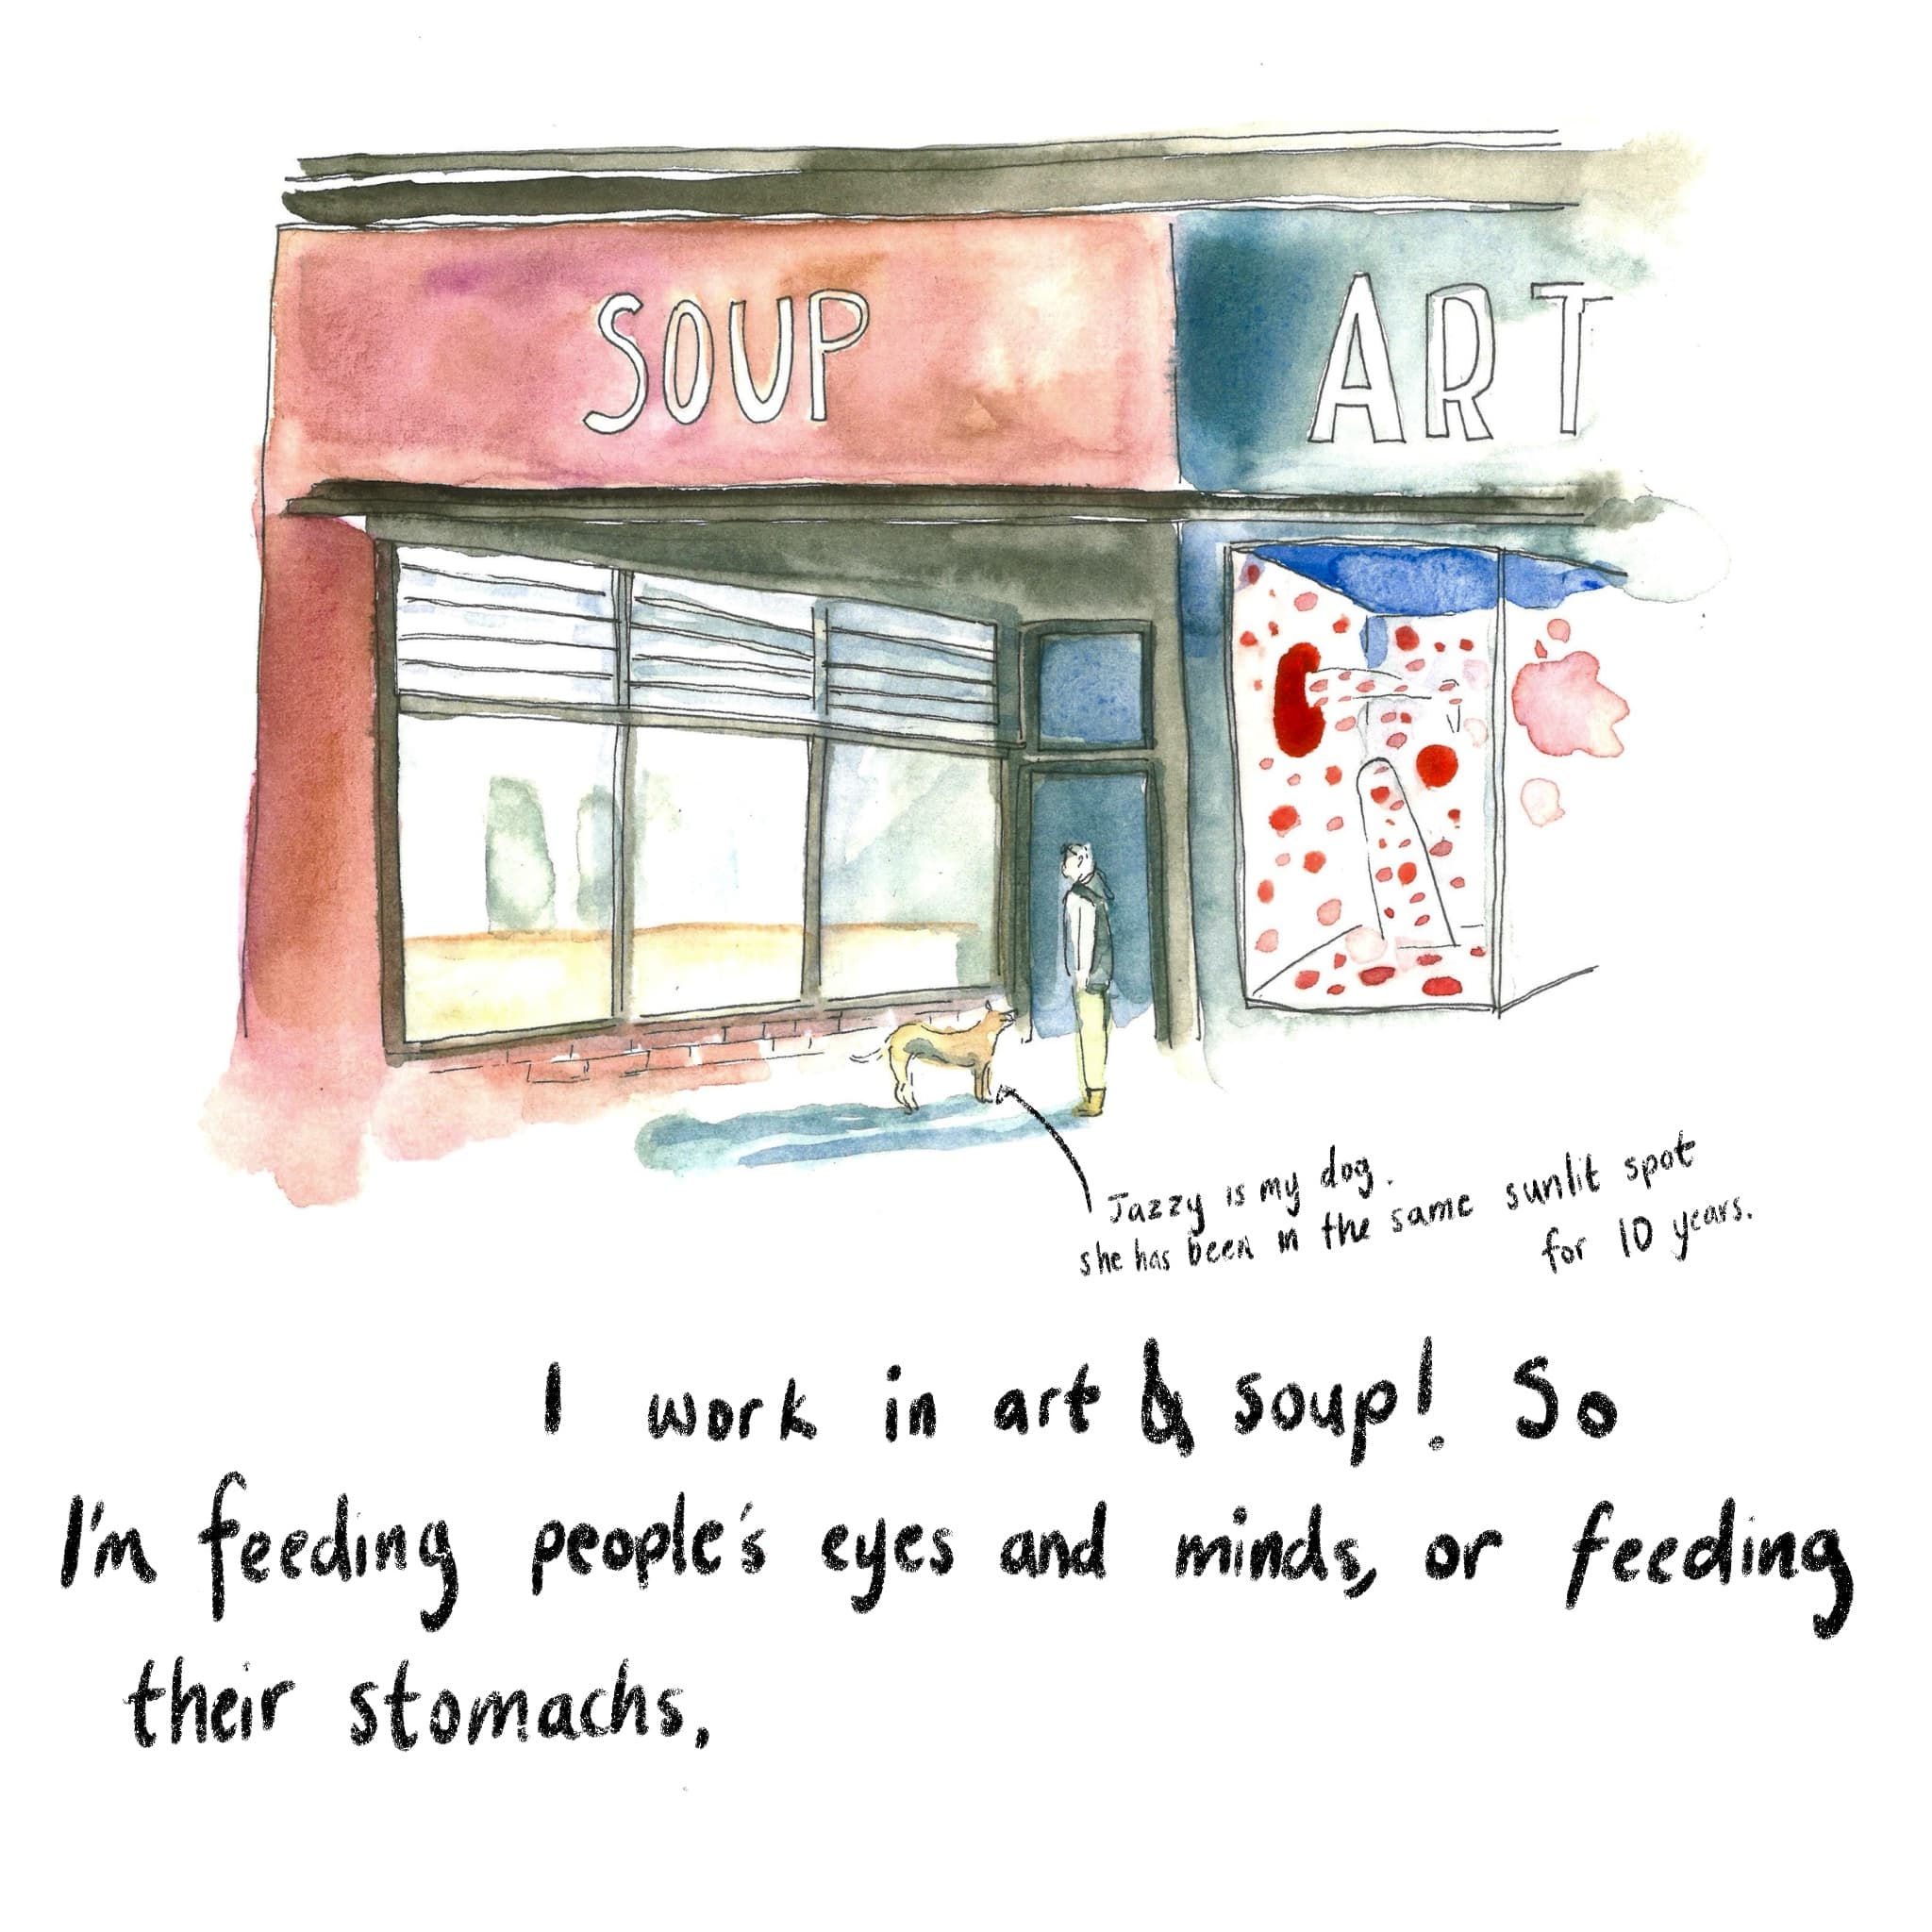 SOUP
ART
Jazzy is my dog.
she has been in the same sunlit spot
for 10 years.
I work in art & soup! So
I'm feeding people's eyes and minds, or feeding
their stomachs,